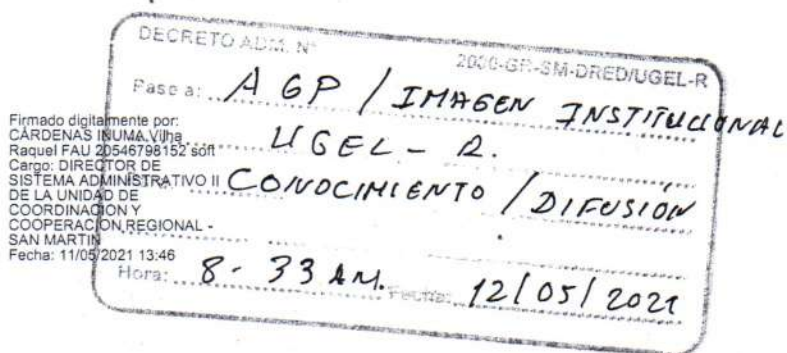 DECRETO ADM. N°
2020-GR-SM-DRED/UGEL-R
Pase a: AGP / IMAGEN INSTITUCIONAL
UGEL - R.
CONOCIMIENTO / DIFUSIÓN
Hora: 8-33 AM. Fecha: 12/05/2021
Firmado digitalmente por:
CARDENAS INUMA Vilha
Raquel FAU 20546798152 soft
Cargo: DIRECTOR DE
SISTEMA ADMINISTRATIVO II
DE LA UNIDAD DE
COORDINACION Y
COOPERACION REGIONAL -
SAN MARTIN
Fecha: 11/05/2021 13:46